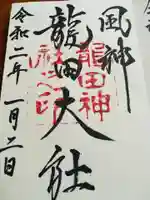 風神
龍田大社
龍田神
社之印
令和二年一月二日